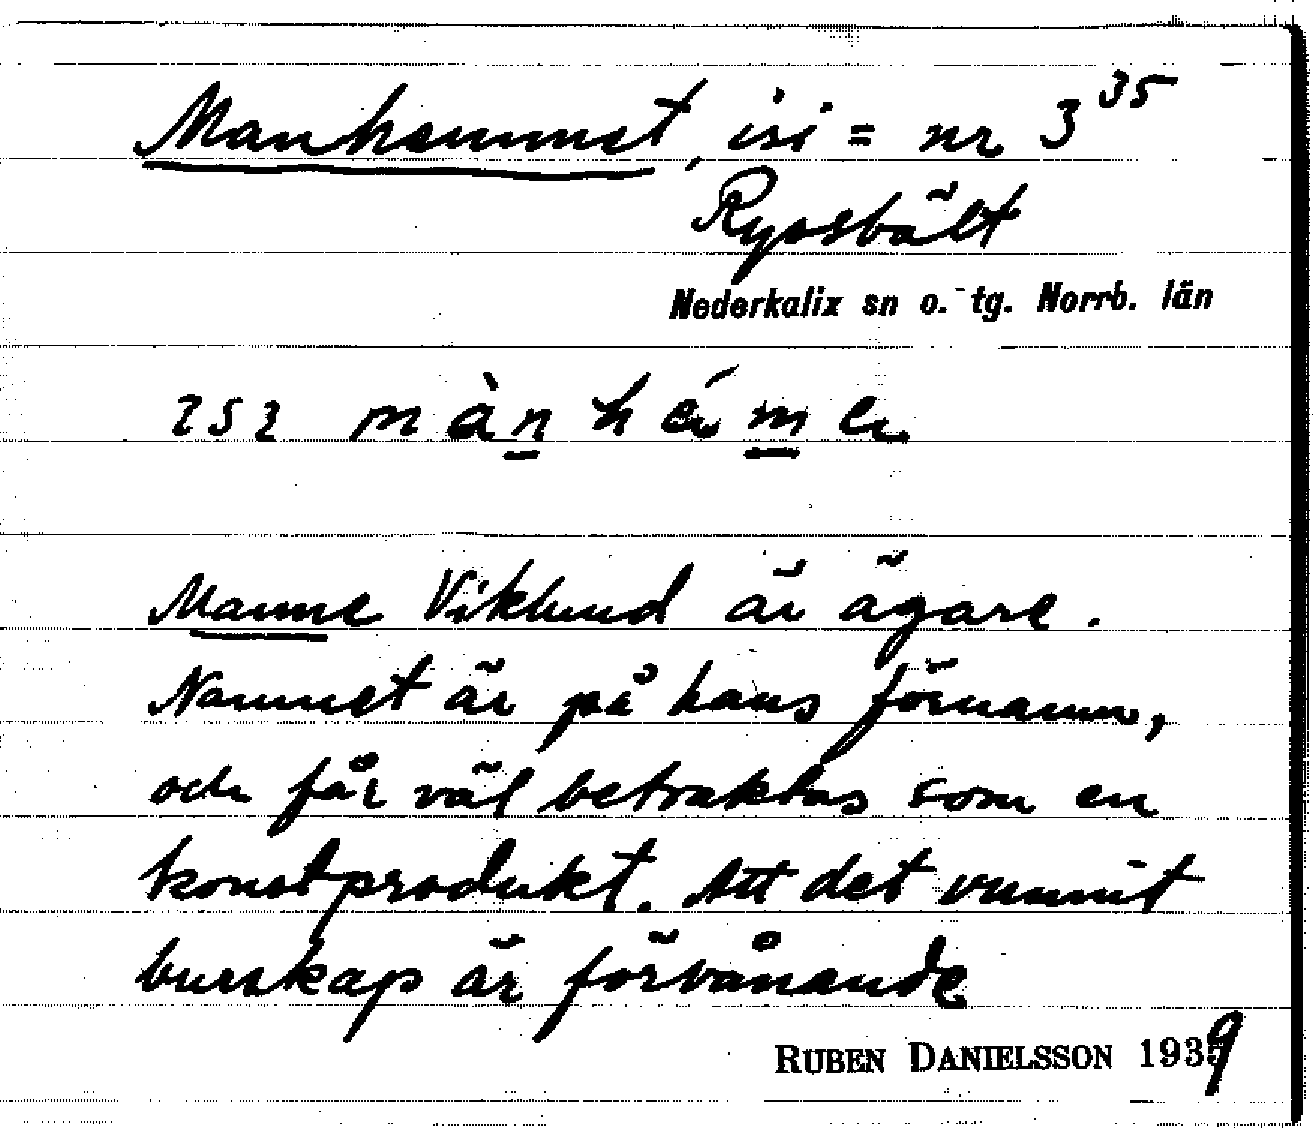 Manhemmet, isi = nr 3³⁵
Ryssbält
Nederkalix sn o. tg. Norrb. län
252 mànhém
Manne Viklund är ägare.
Namnet är på hans förnamn,
och får väl betraktas som en
konstprodukt. Att det vunnit
burskap är förvånande
RUBEN DANIELSSON 1939